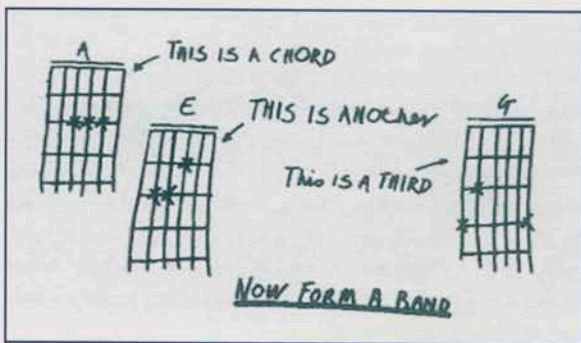 A
THIS IS A CHORD
E
THIS IS ANOTHER
G
THIS IS A THIRD
NOW FORM A BAND